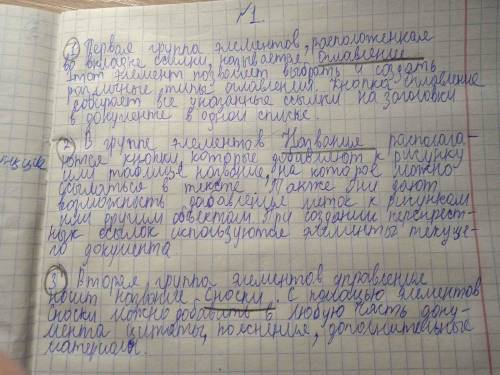 №1.
1 Первая группа элементов, расположенная
во вкладке ссылки, называется Оглавление.
Этот элемент позволяет выбрать и создать
различные типы оглавления. Кнопка оглавление
собирает все указанные ссылки на заголовки
в документе в одной списке.
2 В группе элементов Название распологa-
ются кнопки, которые добавляют к рисунку
или таблице название, на которое можно
ссылаться в тексте. Также они дают
возможность добавления меток к рисункам
или другим объектам. При создании перекрест-
ных ссылок используются элементы текуще-
го документа
3 Вторая группа элементов управления
носит название Сноски. С помощью элементов
сноски можно добавить в любую часть доку-
мента цитаты, пояснения, дополнительные
материалы.